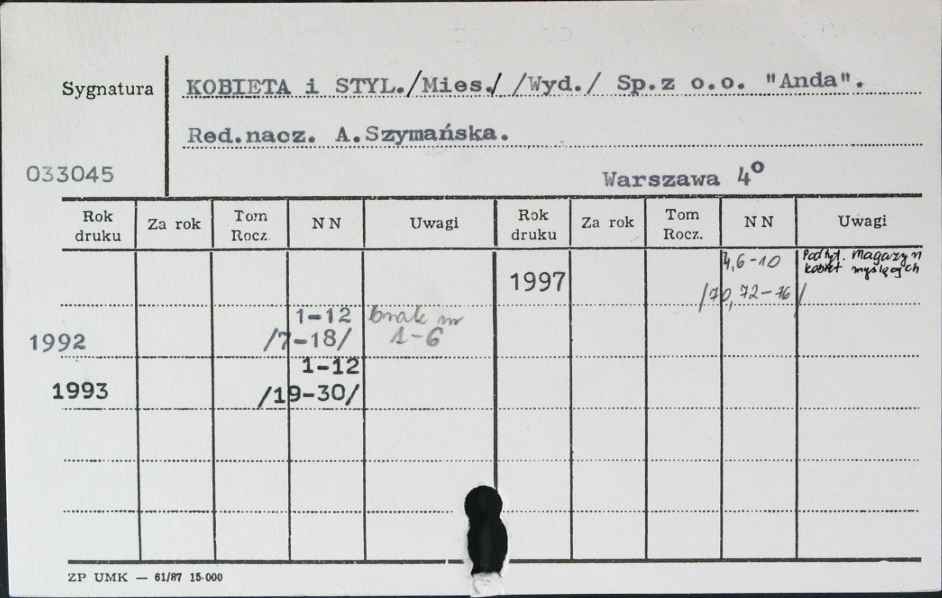 Sygnatura
KOBIETA i STYL./Mies./ /Wyd./ Sp.z o.o. "Anda".
Red.nacz. A.Szymańska.
033045
Warszawa 4º
Rok druku Za rok Tom Rocz. N N Uwagi Rok druku Za rok Tom Rocz. N N Uwagi
1997 4,6-10 Podtyt. Magazyn
kobiet myślących
/70, 72-76/
1992 1-12 brak nr
/7-18/ 1-6
1993 1-12
/19-30/
ZP UMK — 61/87 15·000